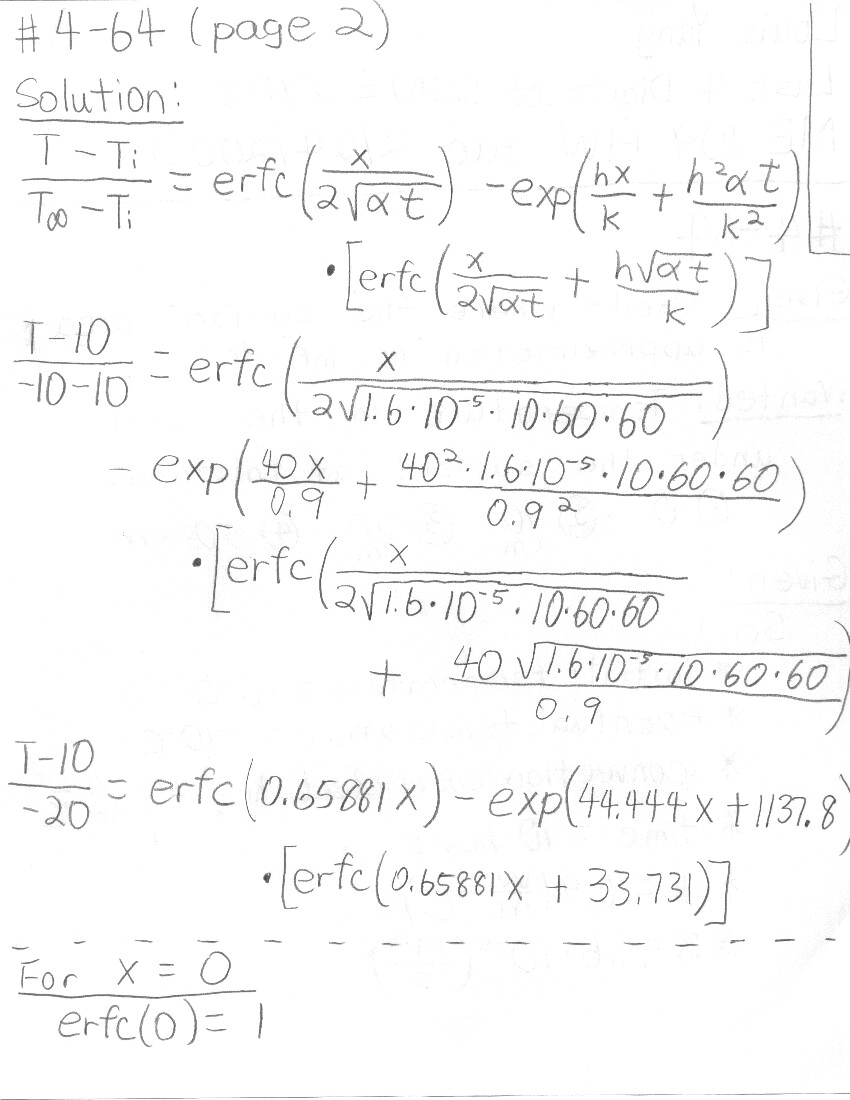 #4-64 (page 2)
Solution:
T - Ti / T∞ - Ti = erfc(x / 2√αt) - exp(hx/k + h²αt/k²)
• [erfc(x / 2√αt + h√αt / k)]
T-10 / -10-10 = erfc(x / 2√1.6·10⁻⁵·10·60·60)
- exp(40x / 0.9 + 40²·1.6·10⁻⁵·10·60·60 / 0.9²)
• [erfc(x / 2√1.6·10⁻⁵·10·60·60
+ 40√1.6·10⁻⁵·10·60·60 / 0.9)
T-10 / -20 = erfc(0.65881x) - exp(44.444x + 1137.8)
• [erfc(0.65881x + 33.731)]
For x = 0
erfc(0) = 1